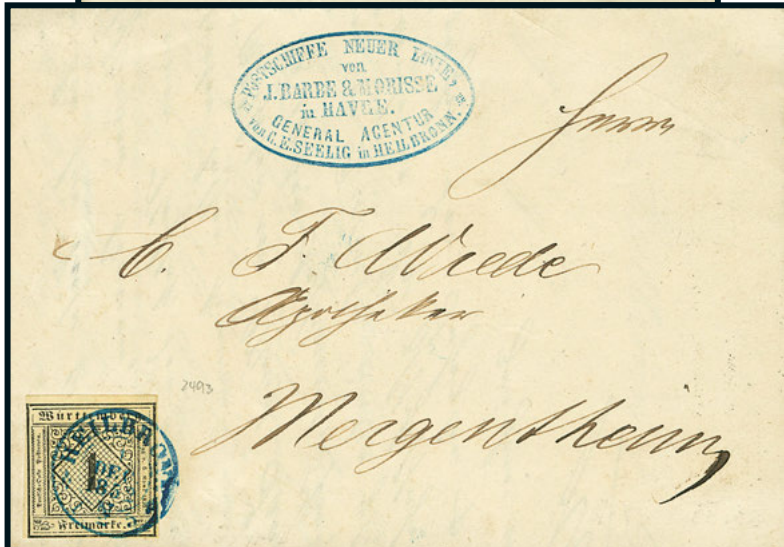 POSTSCHIFFE NEUER LINIE
von
J. BARBE & MORISSE
in HAVRE.
GENERAL AGENTUR
von C.E. SEELIG in HEILBRONN.
Herrn
C. F. Wrede
Apotheker
Mergentheim
2493
Württemberg
HEILBRONN
1
DEZ
18
Freimarke.